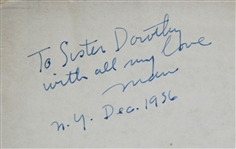 To Sister Dorothy
with all my love
Man
N.Y. Dec. 1936